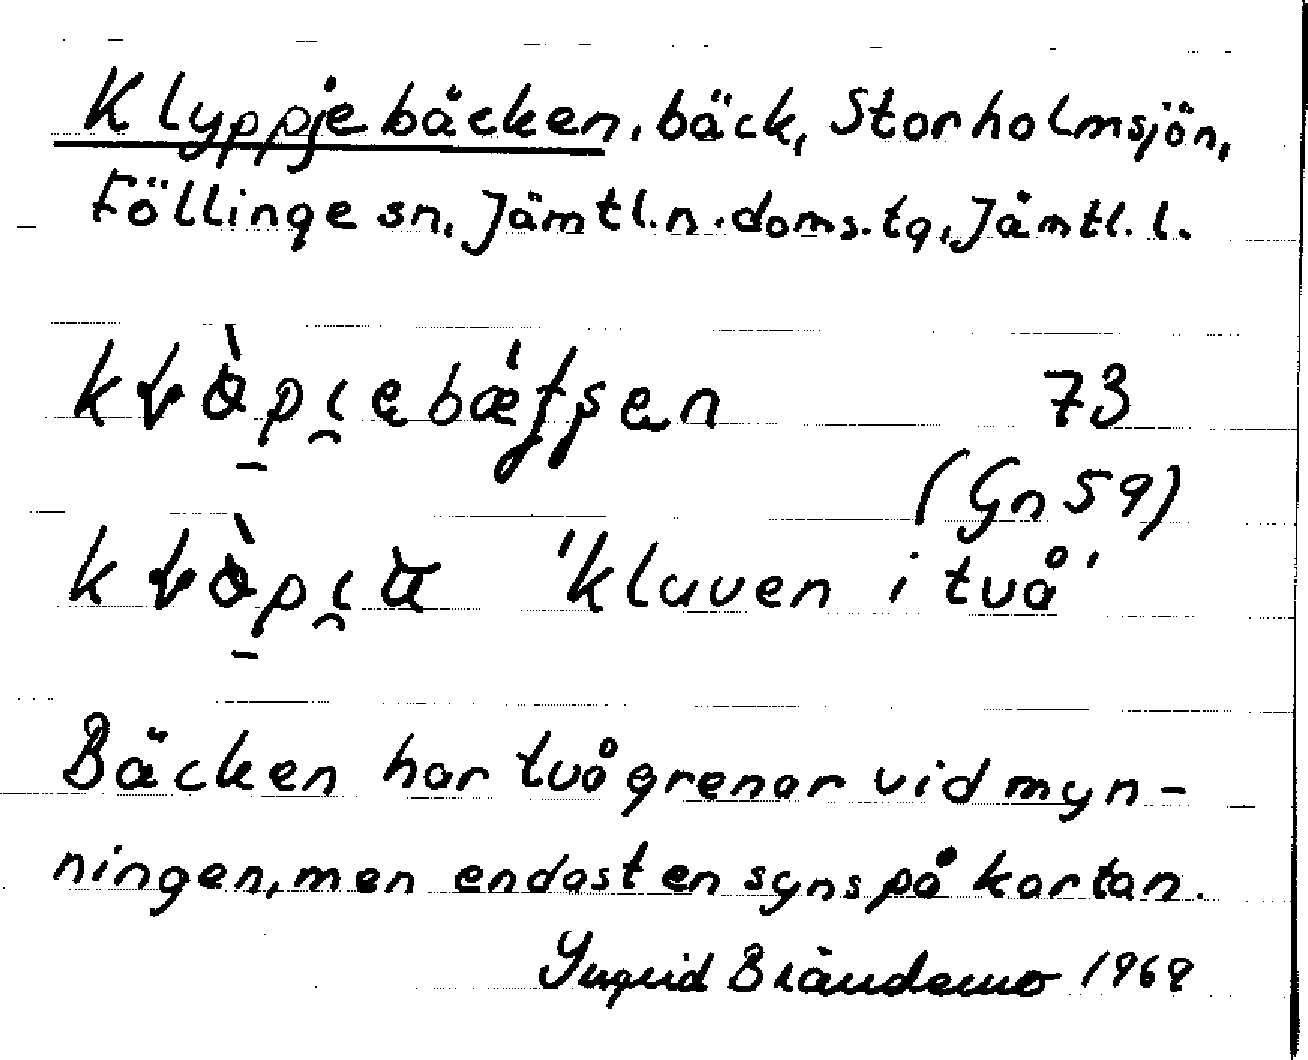 Klyppjebäcken, bäck, Storholmsjön,
Föllinge sn, Jämtl.n.doms.tg, Jämtl. l.
73
(Gn 59)
'kluven i två'
Bäcken har två grenar vid myn-
ningen, men endast en syns på kartan.
Ingrid Brändemo 1969